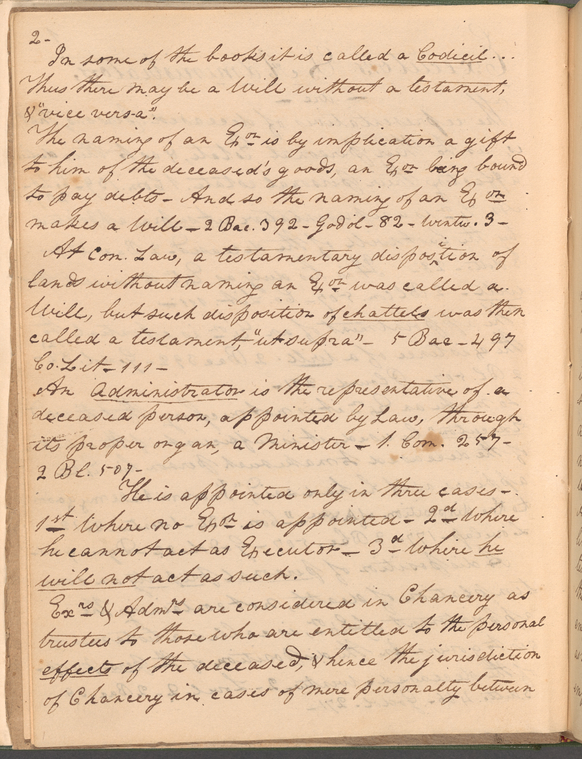 2-
In some of the books it is called a Codicil...
Thus there may be a Will without a testament,
& "vice versa".
The naming of an Exor is by implication a gift
to him of the deceased's goods, an Exor being bound
to pay debts - And so the naming of an Exor
makes a Will - 2 Bac. 392 - Godol - 82 - Wintw. 3 -
At Con. Law, a testamentary disposition of
lands without naming an Exor was called a
Will, but such disposition of chattels was then
called a testament "ut supra" - 5 Bac - 497
Co. Lit - 111 -
An Administrator is the representative of a
deceased person, appointed by Law, through
its proper organ, a Minister - 1. Com. 257 -
2 Bl. 507 -
He is appointed only in three cases -
1st Where no Exor is appointed - 2d Where
he cannot act as Executor - 3d Where he
will not act as such.
Exrs & Admrs are considered in Chancery as
trustees to those who are entitled to the personal
effects of the deceased, & hence the jurisdiction
of Chancery in cases of mere personalty between